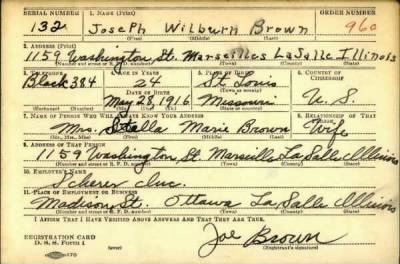 SERIAL NUMBER 1. NAME (Print) ORDER NUMBER
132 Joseph Wilburn Brown 960
(First) (Middle) (Last)
2. ADDRESS (Print)
1159 Washington St. Marseilles LaSalle Illinois
(Number and street or R. F. D. number) (Town) (County) (State)
3. TELEPHONE 4. AGE IN YEARS 5. PLACE OF BIRTH 6. COUNTRY OF CITIZENSHIP
Black 384 24 St. Louis
DATE OF BIRTH
May 28, 1916 Missouri U. S.
(Exchange) (Number) (Mo.) (Day) (Yr.) (State or country)
7. NAME OF PERSON WHO WILL ALWAYS KNOW YOUR ADDRESS 8. RELATIONSHIP OF THAT PERSON
Mrs. Stella Marie Brown Wife
(Mr., Mrs., Miss) (First) (Middle) (Last)
9. ADDRESS OF THAT PERSON
1159 Washington St. Marseille La Salle Illinois
(Number and street or R. F. D. number) (Town) (County) (State)
10. EMPLOYER'S NAME
Scherer Inc.
11. PLACE OF EMPLOYMENT OR BUSINESS
Madison St. Ottawa La Salle Illinois
(Number and street or R. F. D. number) (Town) (County) (State)
I AFFIRM THAT I HAVE VERIFIED ABOVE ANSWERS AND THAT THEY ARE TRUE.
REGISTRATION CARD
D. S. S. Form 1 (over) Joe Brown
(Registrant's signature)